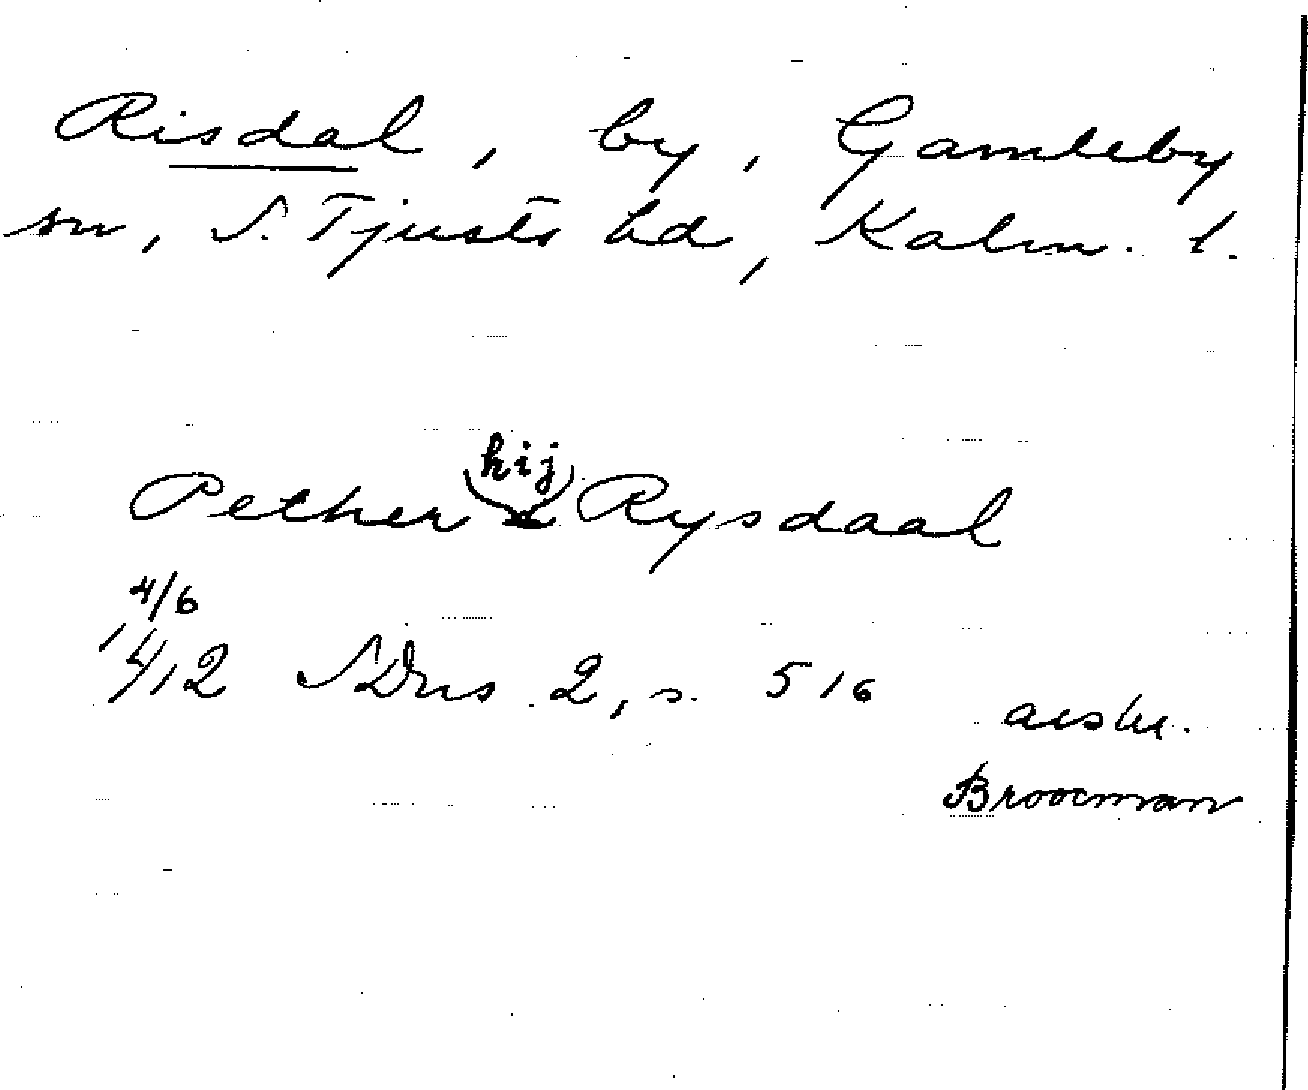 Risdal, by, Gamleby
sn, S. Tjusts hd, Kalm. l.
hij
Pether i Rysdaal
4/6
1412 SDns 2, s. 516
avskr.
Broocman